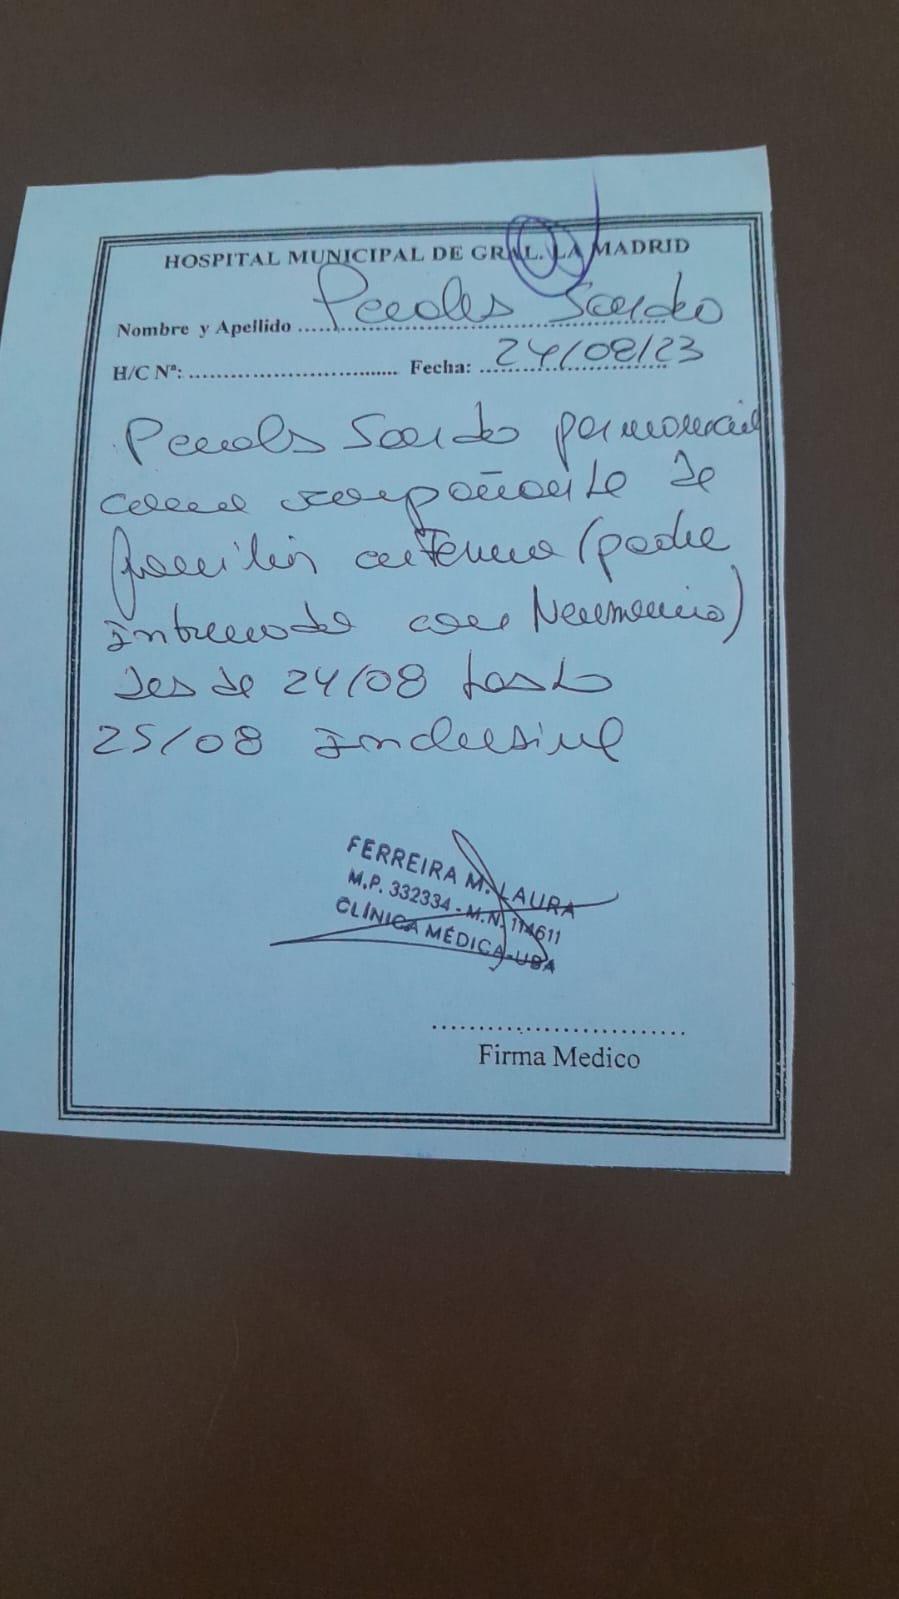 HOSPITAL MUNICIPAL DE GRAL. LA MADRID
Nombre y Apellido
H/C Nº: Fecha: 24/08/23
como acompañante de
familiar enfermo (padre
internado con Neumonia)
desde 24/08 hasta
25/08 inclusive
FERREIRA M. LAURA
M.P. 332334 - M.N. 114611
CLÍNICA MÉDICA-UBA
Firma Medico